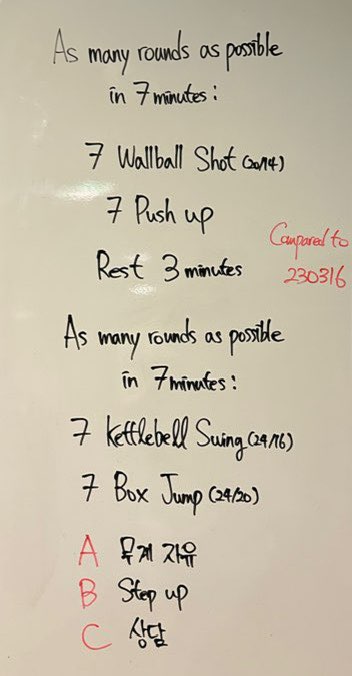 As many rounds as possible
in 7 minutes:
7 Wallball Shot (20/14)
7 Push up
Compared to
230316
Rest 3 minutes
As many rounds as possible
in 7 minutes:
7 Kettlebell Swing (24/16)
7 Box Jump (24/20)
A 무게 자유
B Step up
C 상담